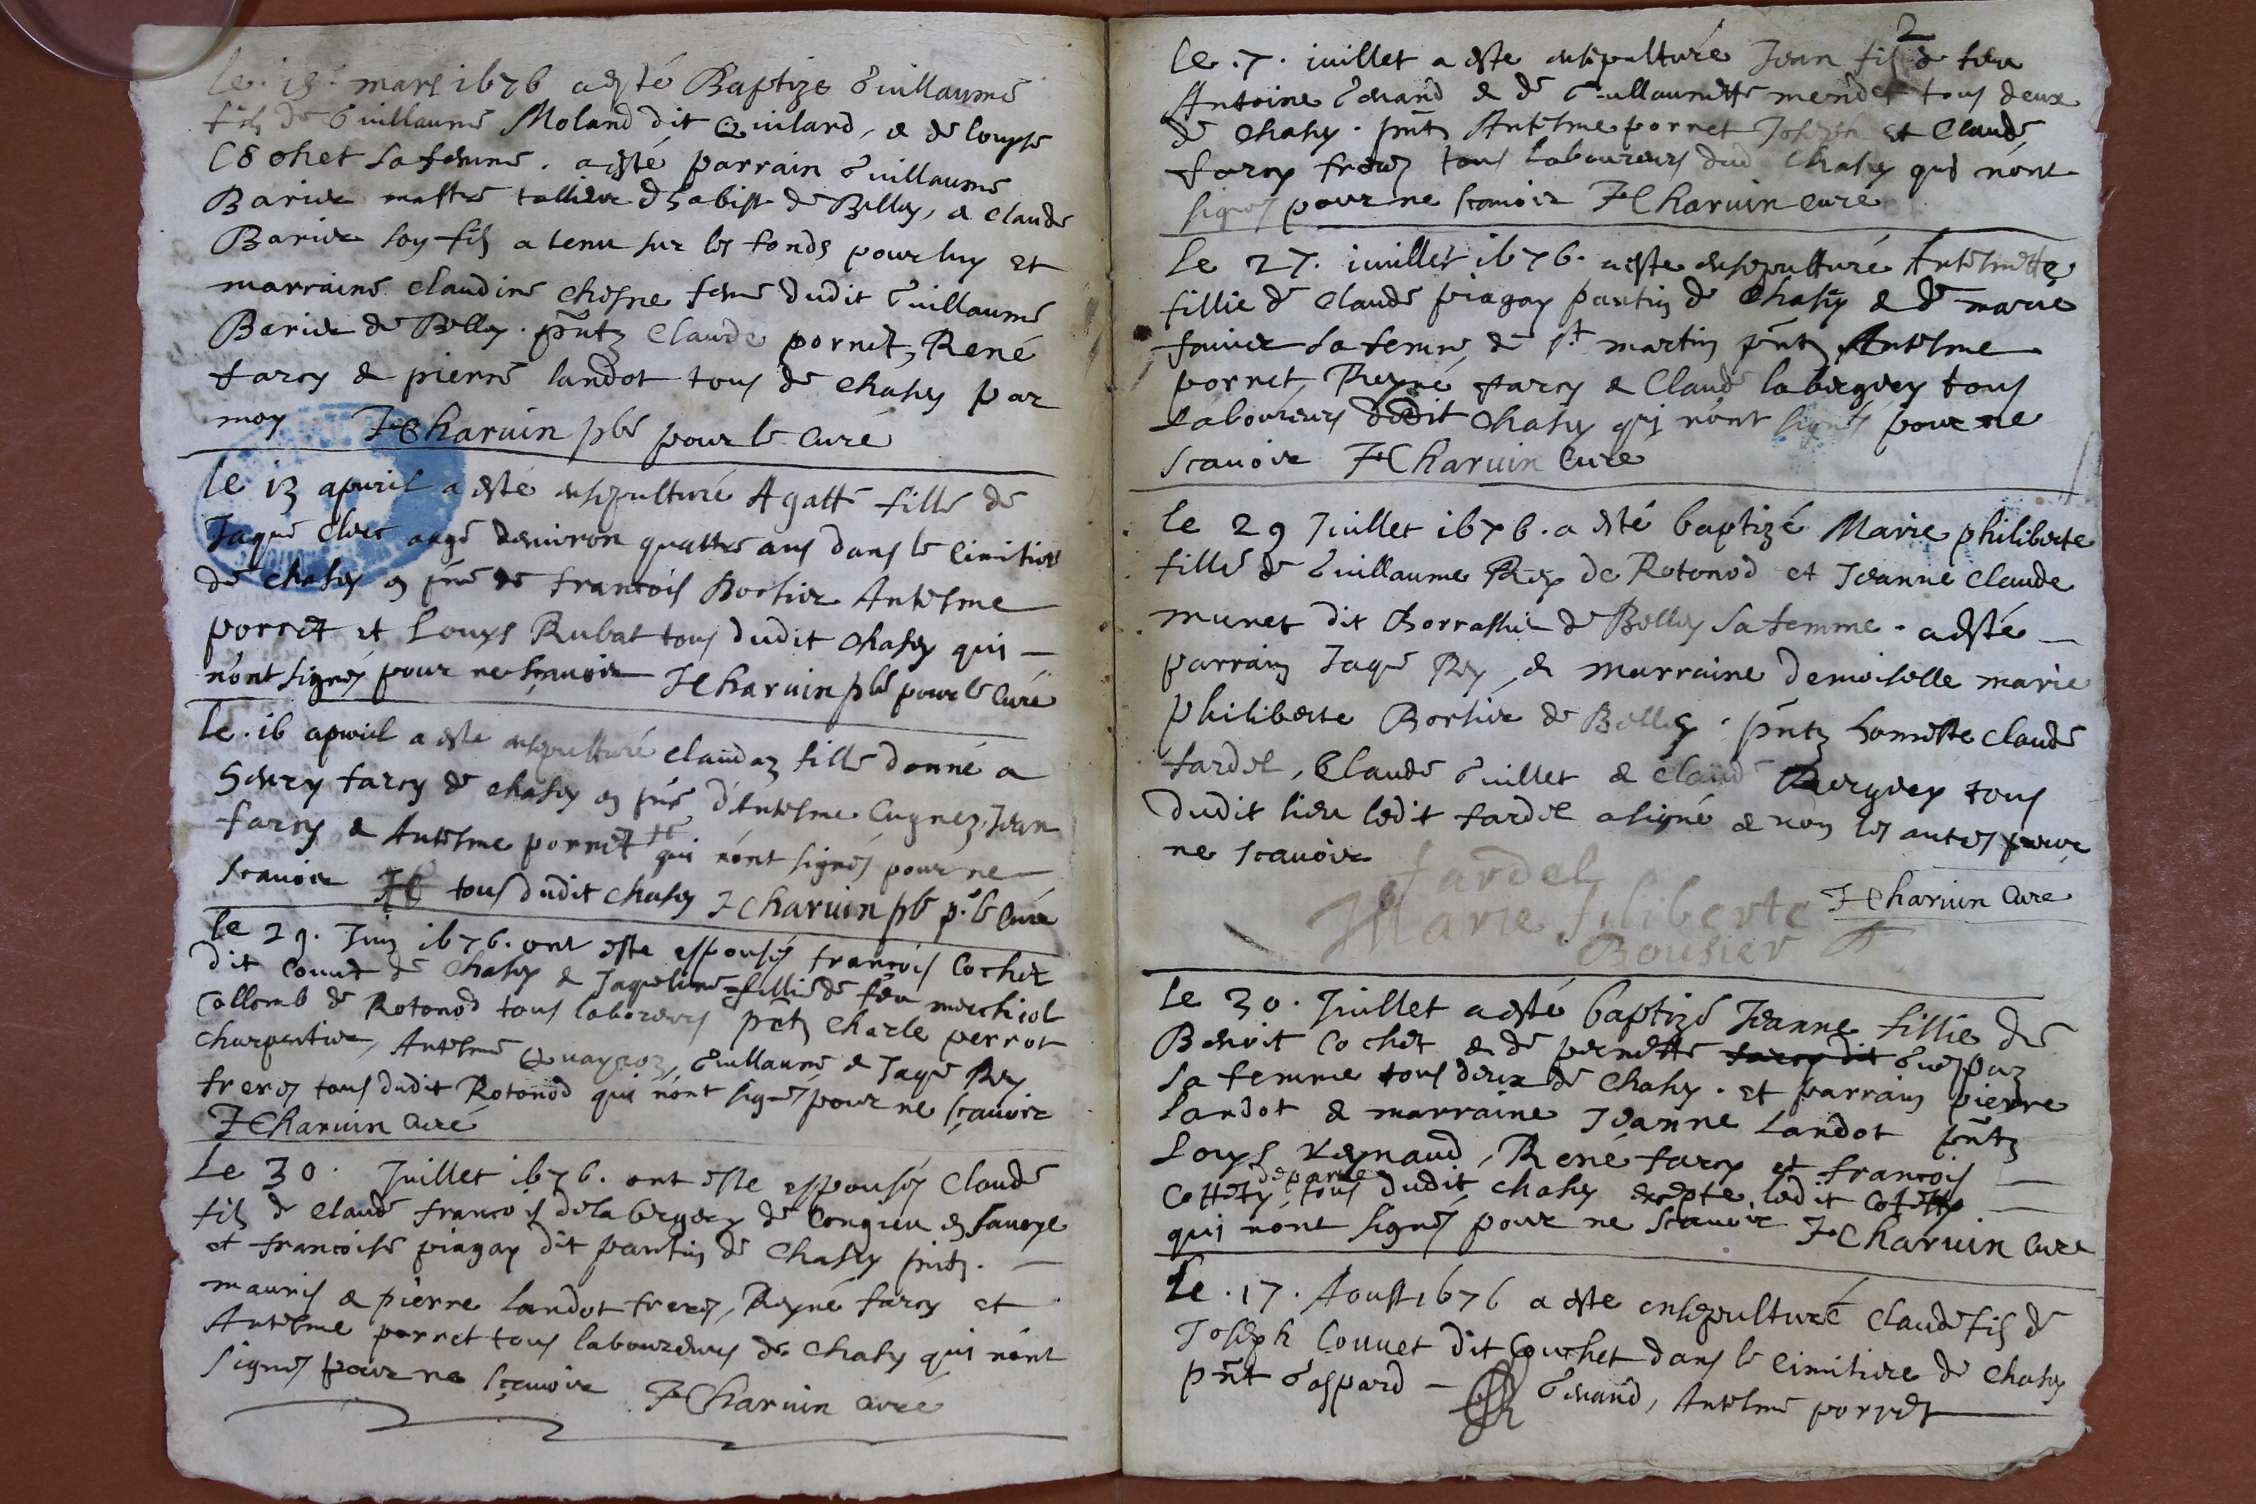 Le. 18. mars 1676 a esté Baptize Guillaume
fils de Guillaume Moland dit Quilard, & de louyse
Cochet sa femme. a esté parrain Guillaume
Barier maitre tallieur d'habist de Belley, & Claude
Barier soy fils a tenu sur les fonds pour luy et
marraine Claudine Chesne feme dudit Guillaume
Barier de Belley. pñtz Claude pornet, René
farcy & pierre landot tous de Chasey par
moy J Charuin pbr pour le Curé
le 13 apuril a esté ensepulturé Agatte fille de
Jaque Clerc aagé denuiron quattre ans dans le cimitiere
de Chasey en pñce de francois Bortier Antelme
porret et Louys Rubat tous dudit Chasey qui
n'ont signés pour ne scauoir J Charuin pbr pour le Curé
Le. 16 apuril a este ensepulturé claudaz fille donné a
Henry farcy de Chasey en pñce d'Antelme Cugnez, Jean
farcy & Antelme pornet qui n'ont signés pour ne
scauoir tous dudit Chasey J Charuin pbr pr le Curé
Le 29. Juin 1676. ont este espousés francois Cochet
dit Couuet de Chasey & Jaqueline fillie de feu michiel
Collomb de Rotonod tous laboreurs pñtz Charle perrot
Charpentier, Antelme Quayroz, Guillaume & Jaque Rey
freres tous dudit Rotonod qui n'ont signés pour ne scauoir
J Charuin Curé
Le 30. Juillet 1676. ont este espousés Claude
fils de Claude francois delabergery de Congieu en Sauoye
et francoise piagay dit pantin de Chasey pñtz.
mauris & pierre landot freres, Reyné farcy et
Antelme porret tous laboureurs de Chasey qui n'ont
signés pour ne scauoir J Charuin Curé
2
Le. 7. iuillet a este ensepulturé Jean fils de feu
Antoine Genand & de Guillaumette mendet tous deux
de Chasey. pñtz Antelme pornet Joseph et Claude
farcy freres tous laboureurs dud Chasey qui n'ont
signés pour ne scauoir J Charuin Curé
Le 27. iuillet 1676. a este ensepulturé Antelmette
fillie de Claude piagay pantin de Chasey & de marie
fauier sa femme de st martin pñtz Antelme
pornet, Reyné farcy & Claude labergery tous
Laboureurs dudit Chasey qui n'ont signés pour ne
scauoir J Charuin Curé
Le 29 Juillet 1676. a esté baptizé Marie philiberte
fille de Guillaume Rey de Rotonod et Jeanne Claude
munet dit Borrassier de Belley sa femme. a esté
parrain Jaque Rey, & marraine Demoiselle marie
philiberte Bortier de Belley. pñtz honneste Claude
fardel, Claude Guillet & Claude Bergery tous
dudit lieu ledit fardel a signé & non les autres pour
ne scauoir
fardel
Marie filiberte J Charuin Cure
Bousier
Le 30. Juillet a esté baptizé Jeanne fillie de
Benoit Cochet & de pernette farcy dit Guespaz
sa femme tous deux de Chasey. et parrain pierre
landot & marraine Jeanne Landot pñtz
Louys Reynaud, René farcy et francois
deparve
Cottety, tous dudit Chasey excepte ledit Cotetty
qui n'ont signés pour ne scauoir J Charuin Cure
Le. 17. Aoust 1676 a este ensepulturé Claude fils de
Joseph Couuet dit Couchet dans le cimitiere de Chasey
pñt Gaspard Genand, Antelme porret